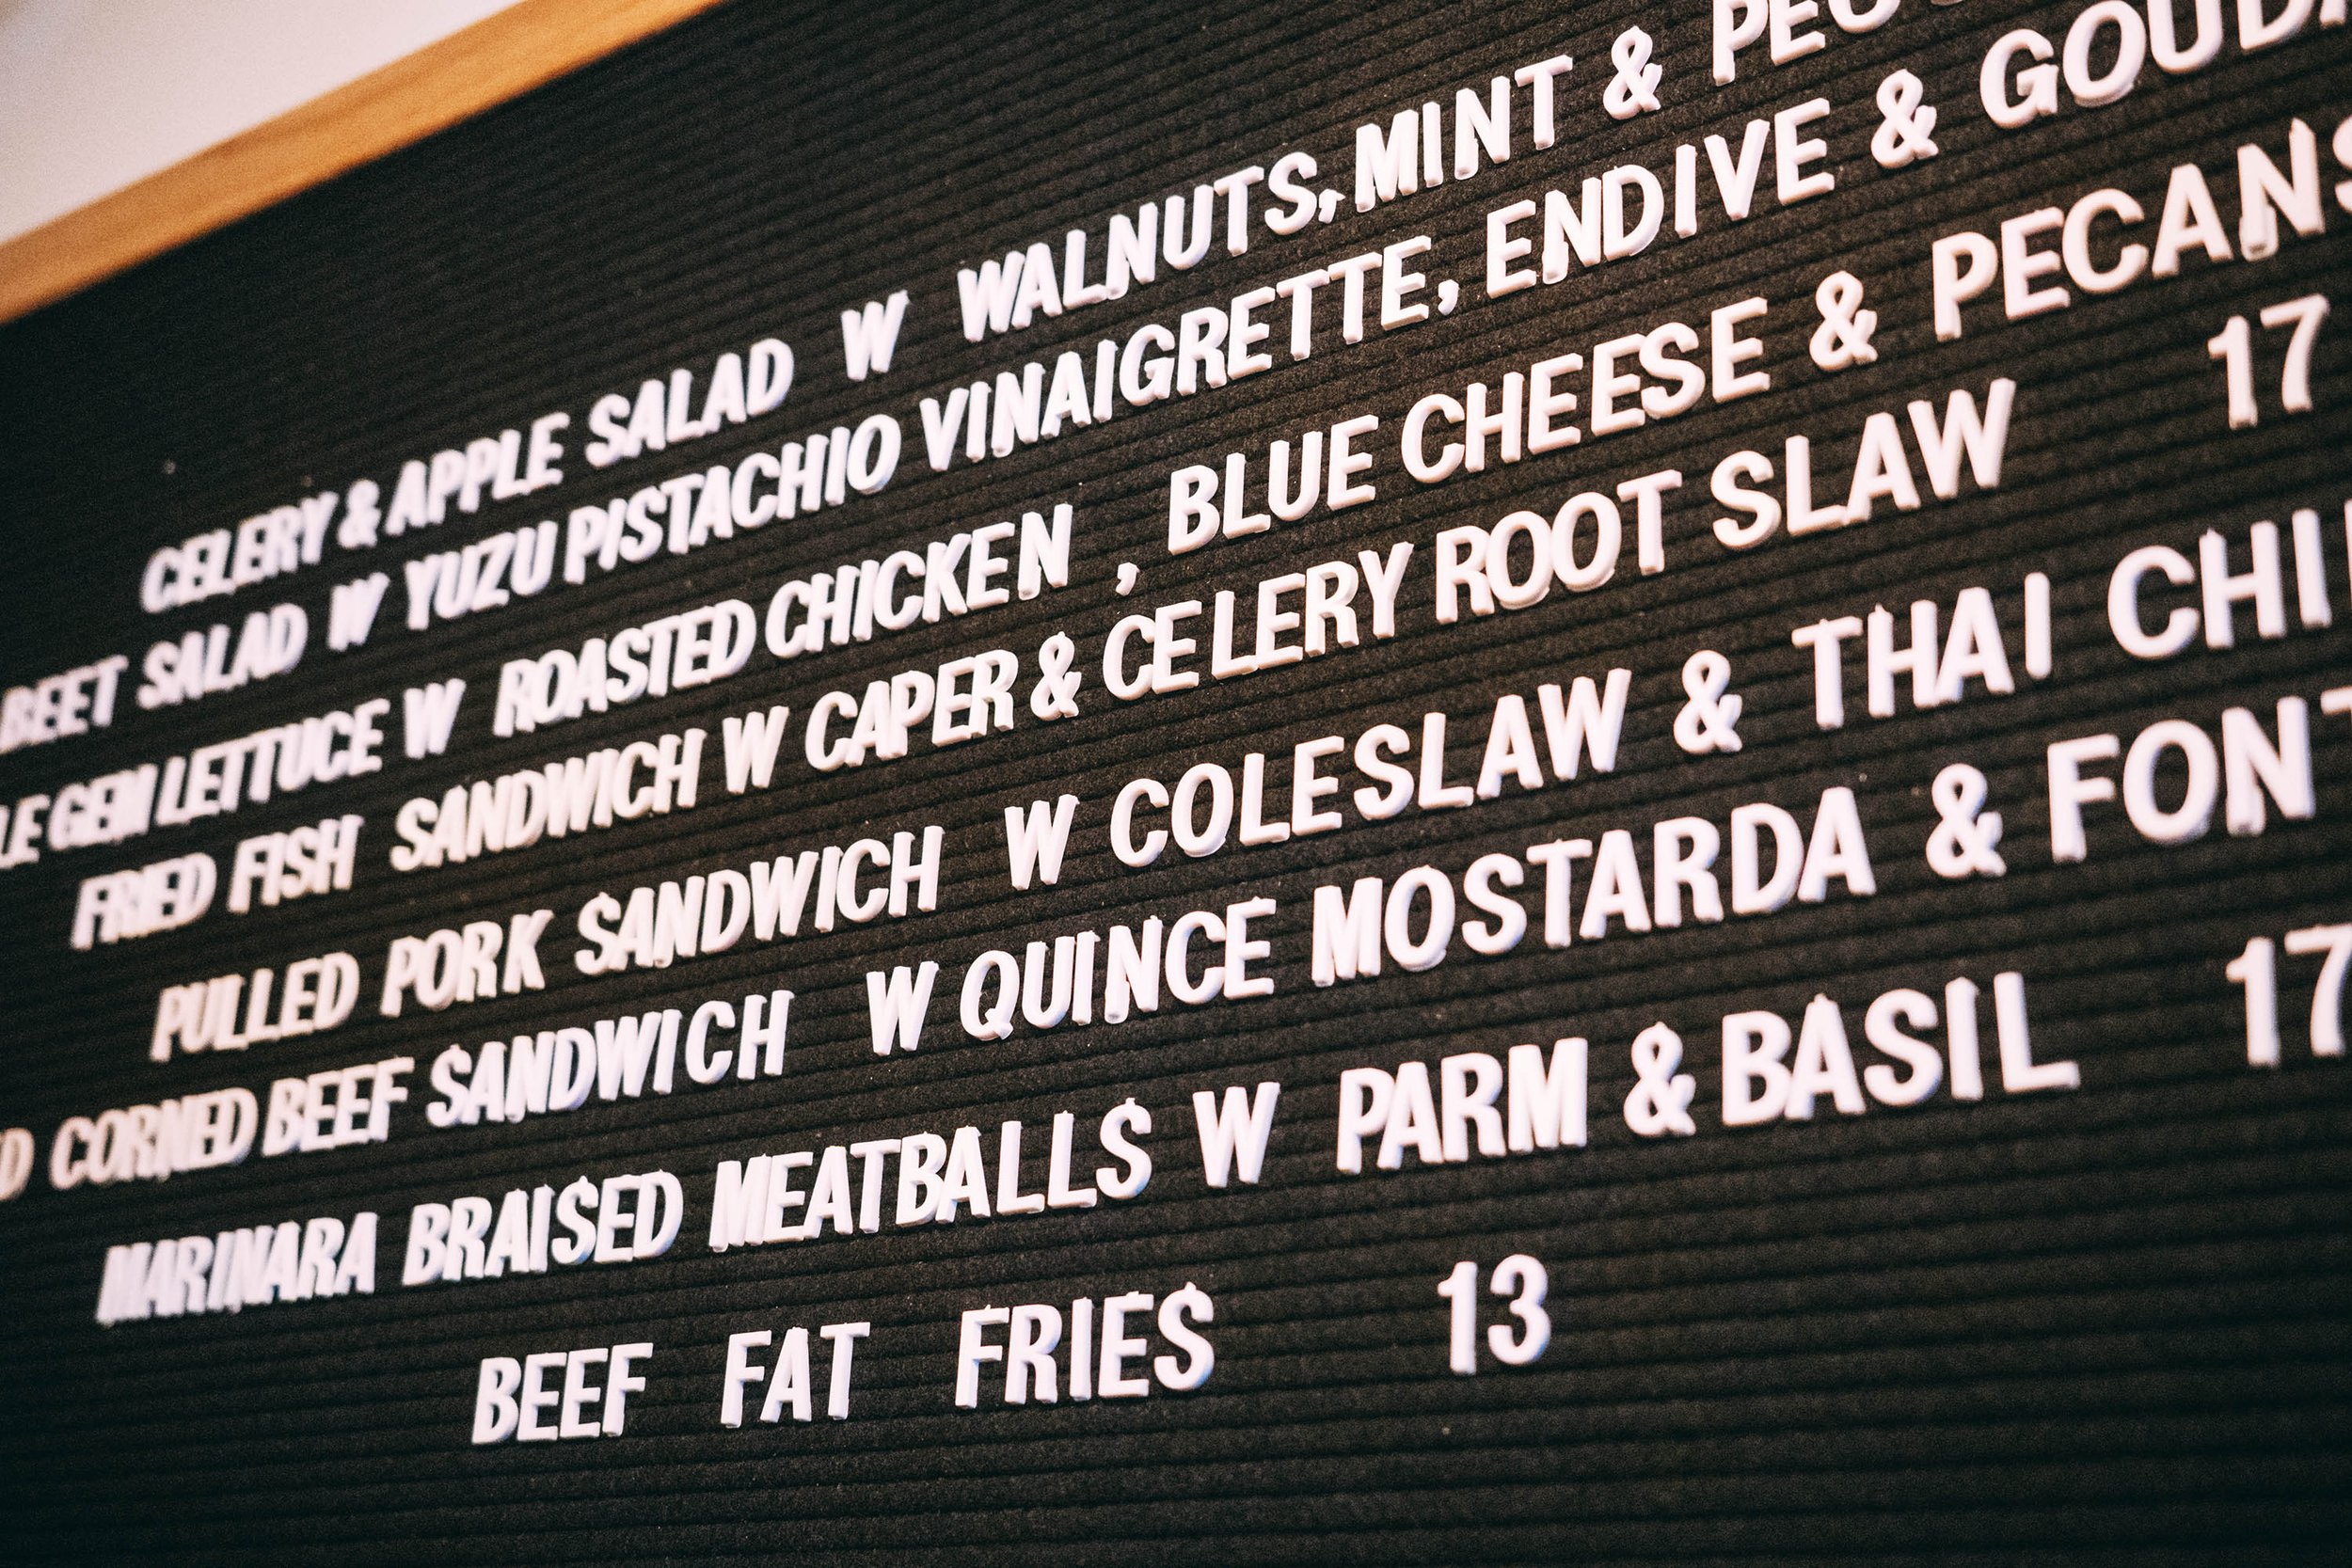 CELERY & APPLE SALAD W WALNUTS, MINT &
BEET SALAD W YUZU PISTACHIO VINAIGRETTE, ENDIVE & GOUDA
GEM LETTUCE W ROASTED CHICKEN , BLUE CHEESE & PECANS
FRIED FISH SANDWICH W CAPER & CELERY ROOT SLAW 17
PULLED PORK SANDWICH W COLESLAW & THAI
CORNED BEEF SANDWICH W QUINCE MOSTARDA &
MARINARA BRAISED MEATBALLS W PARM & BASIL 17
BEEF FAT FRIES 13